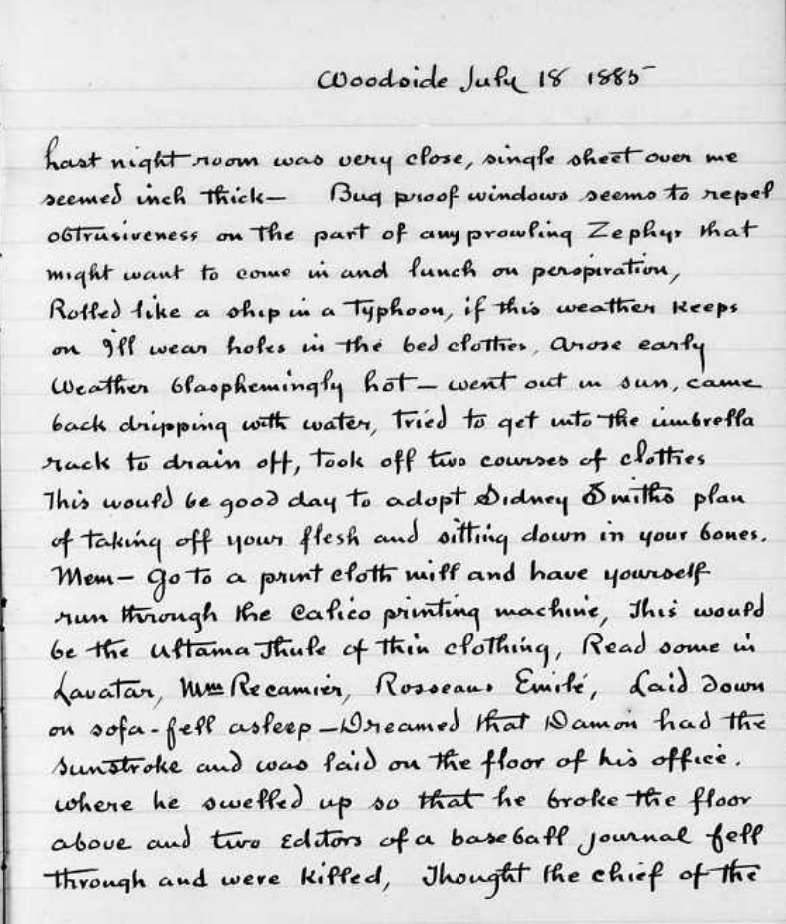 Woodside July 18 1885
Last night room was very close, single sheet over me
seemed inch thick— Bug proof windows seems to repel
obtrusiveness on the part of any prowling Zephyr that
might want to come in and lunch on perspiration,
Rolled like a ship in a Typhoon, if this weather keeps
on I'll wear holes in the bed clothes, arose early
Weather blasphemingly hot— went out in sun, came
back dripping with water, tried to get into the umbrella
rack to drain off, took off two courses of clothes
This would be good day to adopt Sidney Smiths plan
of taking off your flesh and sitting down in your bones.
Mem— Go to a print cloth mill and have yourself
run through the Calico printing machine, This would
be the Ultama Thule of thin clothing, Read some in
Lavatar, Mme Recamier, Rosseaus Emilé, Laid down
on sofa-fell asleep—Dreamed that Damon had the
sunstroke and was laid on the floor of his office.
where he swelled up so that he broke the floor
above and two Editors of a baseball journal fell
through and were killed, Thought the chief of the